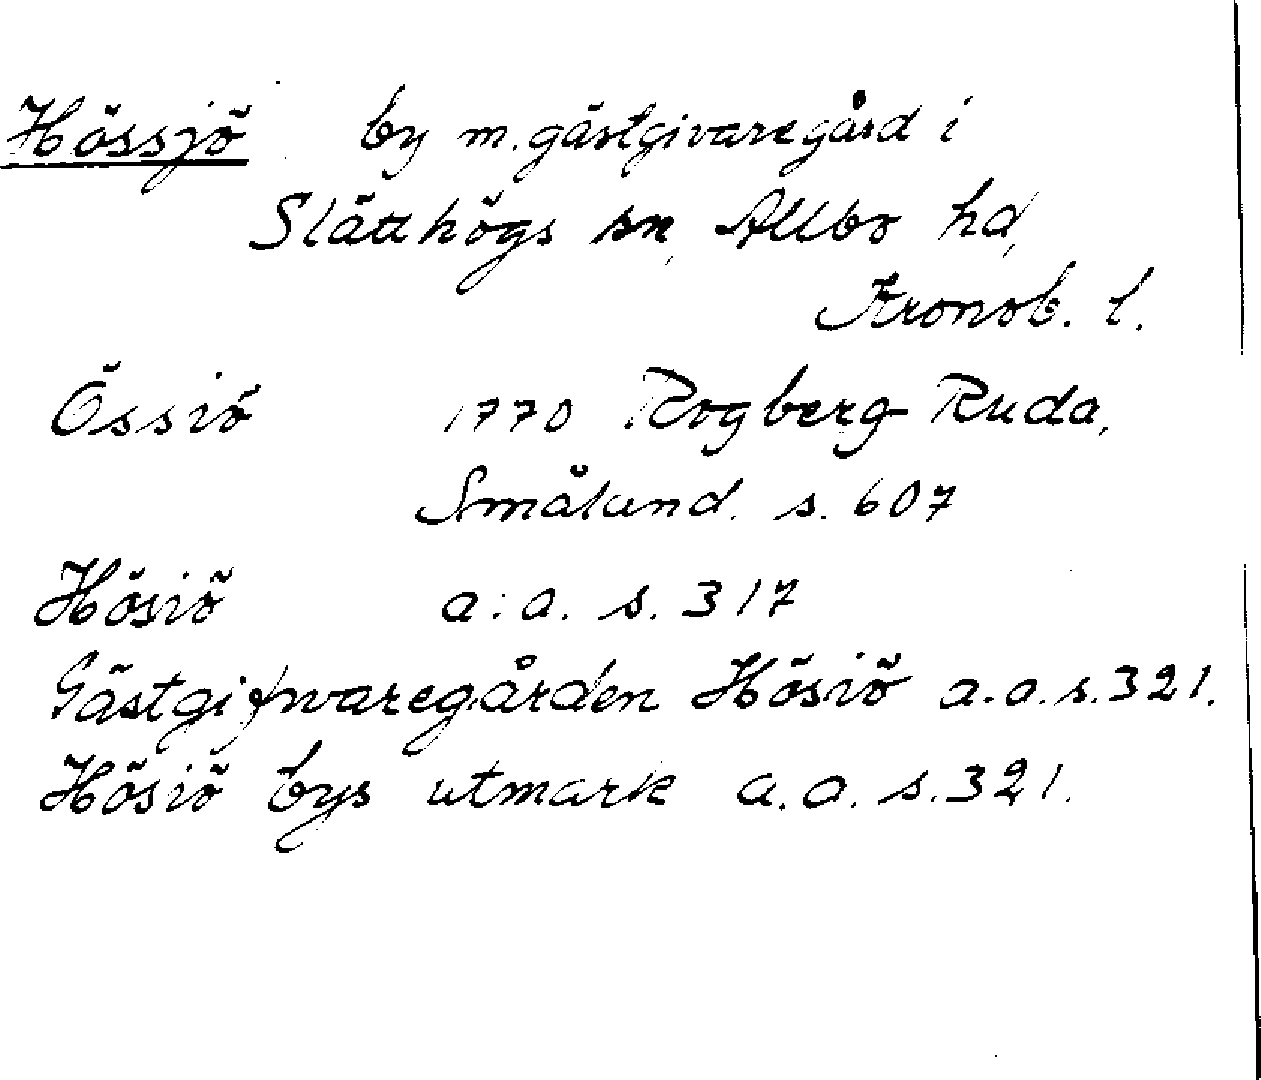 Hössjö by m. gästgivaregård i
Slätthögs sn, Allbo hd,
Kronob. l.
Össiö 1770 Rogberg Ruda,
Småland. s. 607
Hösiö a.a. s. 317
Gästgifvaregården Hösiö a.a. s. 321.
Hösiö bys utmark a.a. s. 321.